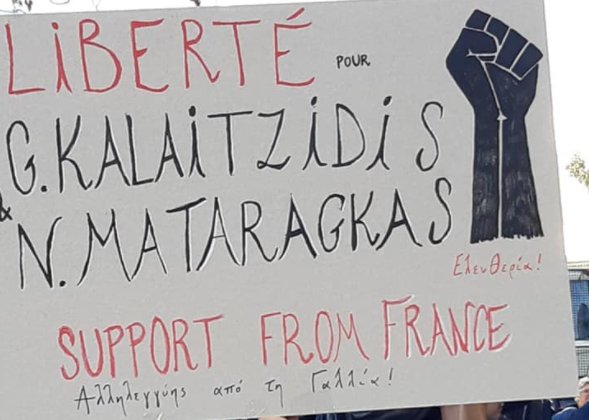 LiBERTÉ POUR
G. KALAiTZiDiS
& N. MATARAGKAS
Ελευθερία!
SUPPORT FROM FRANCE
Αλληλεγγύης από τη Γαλλία!